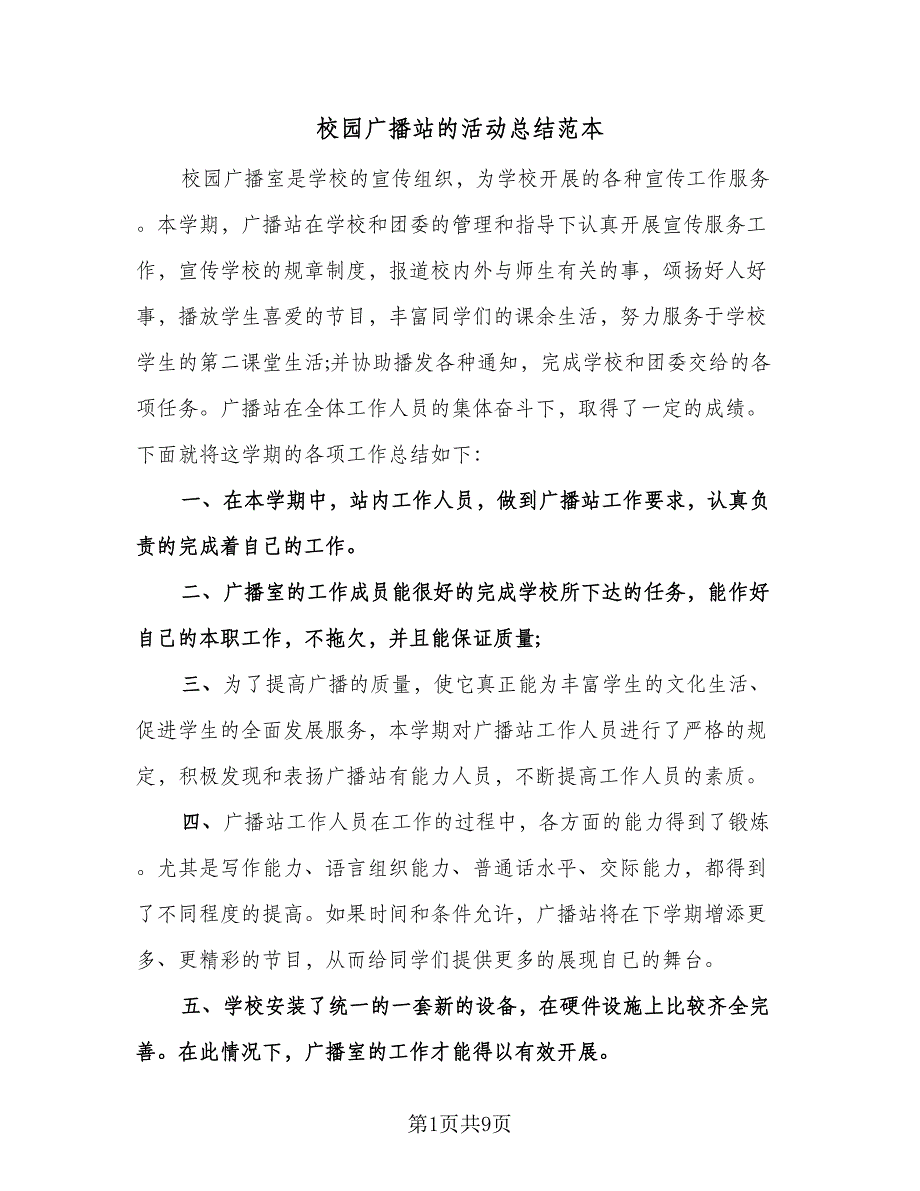 校园广播站的活动总结范本
校园广播室是学校的宣传组织，为学校开展的各种宣传工作服务
。本学期，广播站在学校和团委的管理和指导下认真开展宣传服务工
作，宣传学校的规章制度，报道校内外与师生有关的事，颂扬好人好
事，播放学生喜爱的节目，丰富同学们的课余生活，努力服务于学校
学生的第二课堂生活;并协助播发各种通知，完成学校和团委交给的各
项任务。广播站在全体工作人员的集体奋斗下，取得了一定的成绩。
下面就将这学期的各项工作总结如下：
一、在本学期中，站内工作人员，做到广播站工作要求，认真负
责的完成着自己的工作。
二、广播室的工作成员能很好的完成学校所下达的任务，能作好
自己的本职工作，不拖欠，并且能保证质量;
三、为了提高广播的质量，使它真正能为丰富学生的文化生活、
促进学生的全面发展服务，本学期对广播站工作人员进行了严格的规
定，积极发现和表扬广播站有能力人员，不断提高工作人员的素质。
四、广播站工作人员在工作的过程中，各方面的能力得到了锻炼
。尤其是写作能力、语言组织能力、普通话水平、交际能力，都得到
了不同程度的提高。如果时间和条件允许，广播站将在下学期增添更
多、更精彩的节目，从而给同学们提供更多的展现自己的舞台。
五、学校安装了统一的一套新的设备，在硬件设施上比较齐全完
善。在此情况下，广播室的工作才能得以有效开展。
第1页共9页